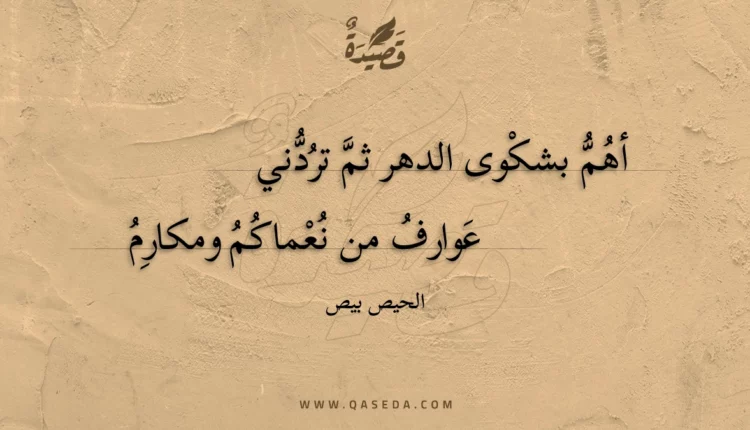 قَصِيْدَةٌ
أهُمُّ بشكْوى الدهر ثمَّ تردُّني
عَوارفُ من نُعْماكُمُ ومكارِمُ
الحيص بيص
WWW.QASEDA.COM